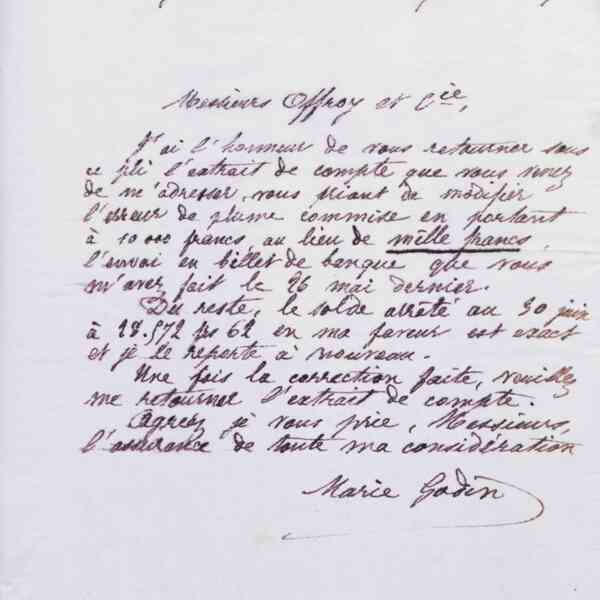 Messieurs Offroy et Cie,
J'ai l'honneur de vous retourner sous
ce pli l'extrait de compte que vous venez
de m'adresser, vous priant de modifier
l'erreur de plume commise en portant
à 10 000 francs, au lieu de mille francs,
l'envoi en billet de banque que vous
m'avez fait le 26 mai dernier.
Du reste, le solde arrêté au 30 juin
à 28.572 frs 62 en ma faveur est exact
et je le reporte à nouveau.
Une fois la correction faite, veuillez
me retourner l'extrait de compte.
Agréez, je vous prie, Messieurs,
l'assurance de toute ma considération
Marie Godin